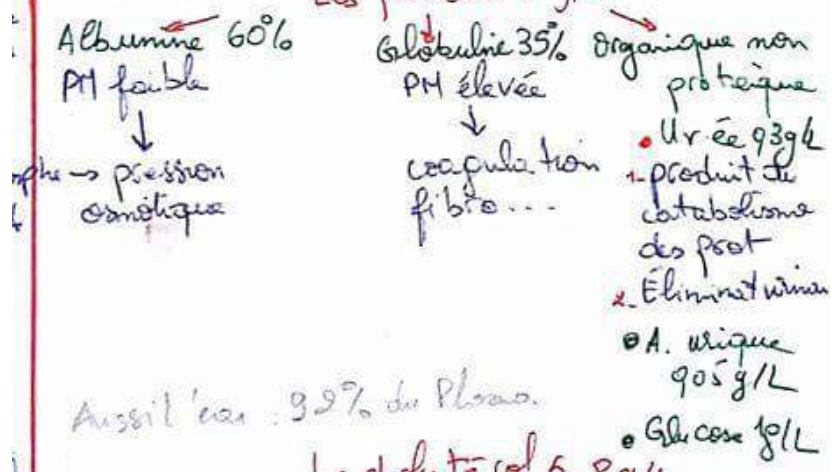 Albumine 60%
PM faible
↓
→ pression
osmotique
Globuline 35%
PM élevée
↓
coagulation
fibro....
Organique non
protéique
• Urée 0,3g/L
1- produit du
catabolisme
des prot
2- Éliminat urinai
• A. urique
0,05 g/L
• Glucose 1g/L
Aussi l'eau : 92% du Plasma.